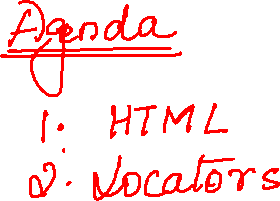 Agenda
1. HTML
2. Locators